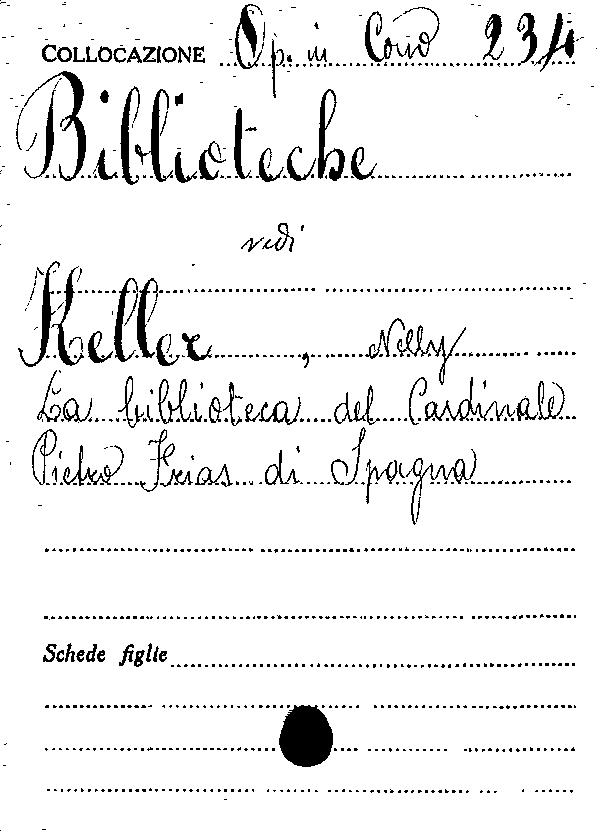 COLLOCAZIONE Op. in Cons 234
Biblioteche
vedi
Keller, Nelly
La biblioteca del Cardinale
Pietro Frias di Spagna
Schede figlie